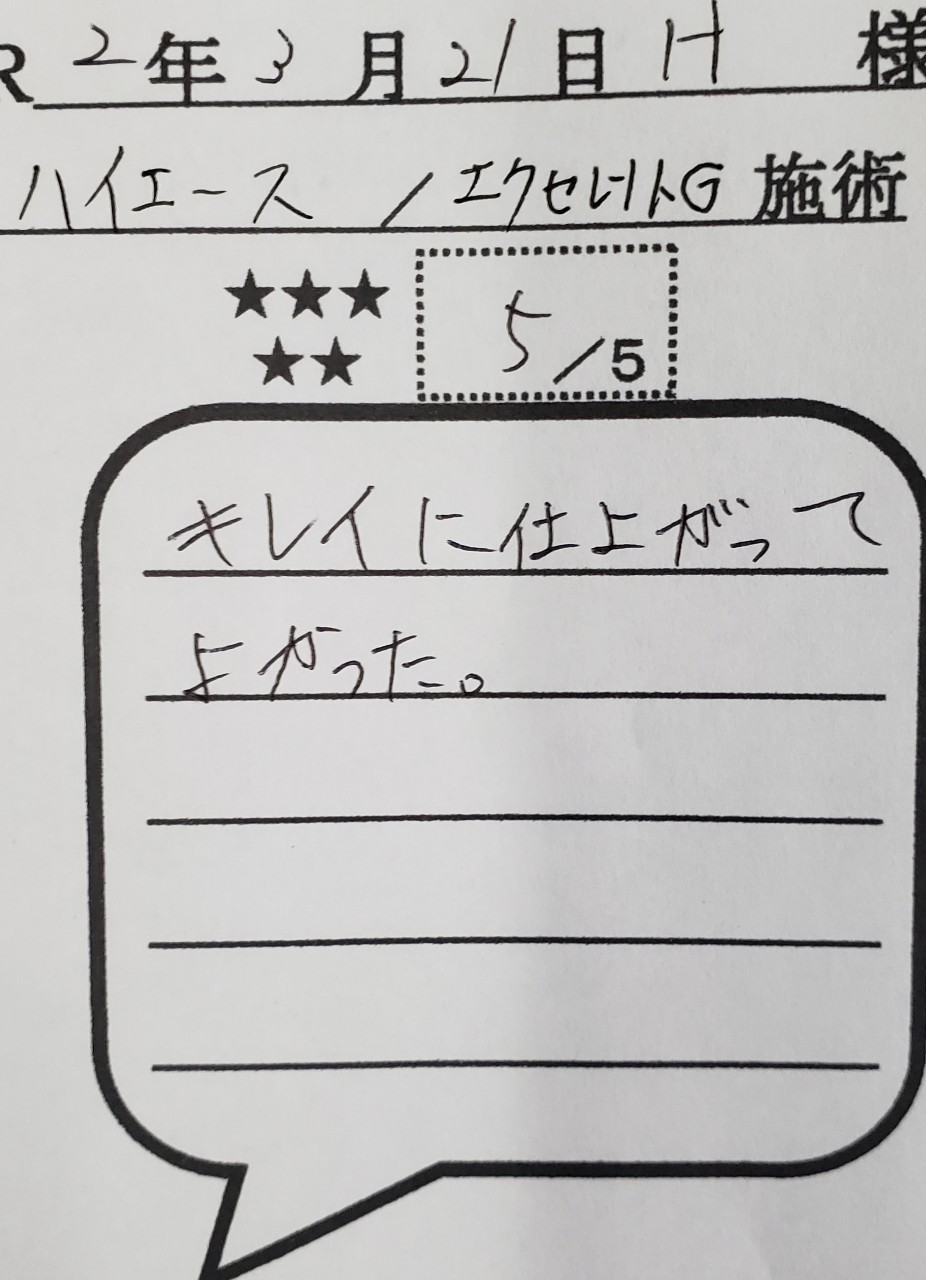 R2年3月21日 H 様
ハイエース / エクセレントG 施術
★★★
★★
5/5
キレイに仕上がって
よかった。